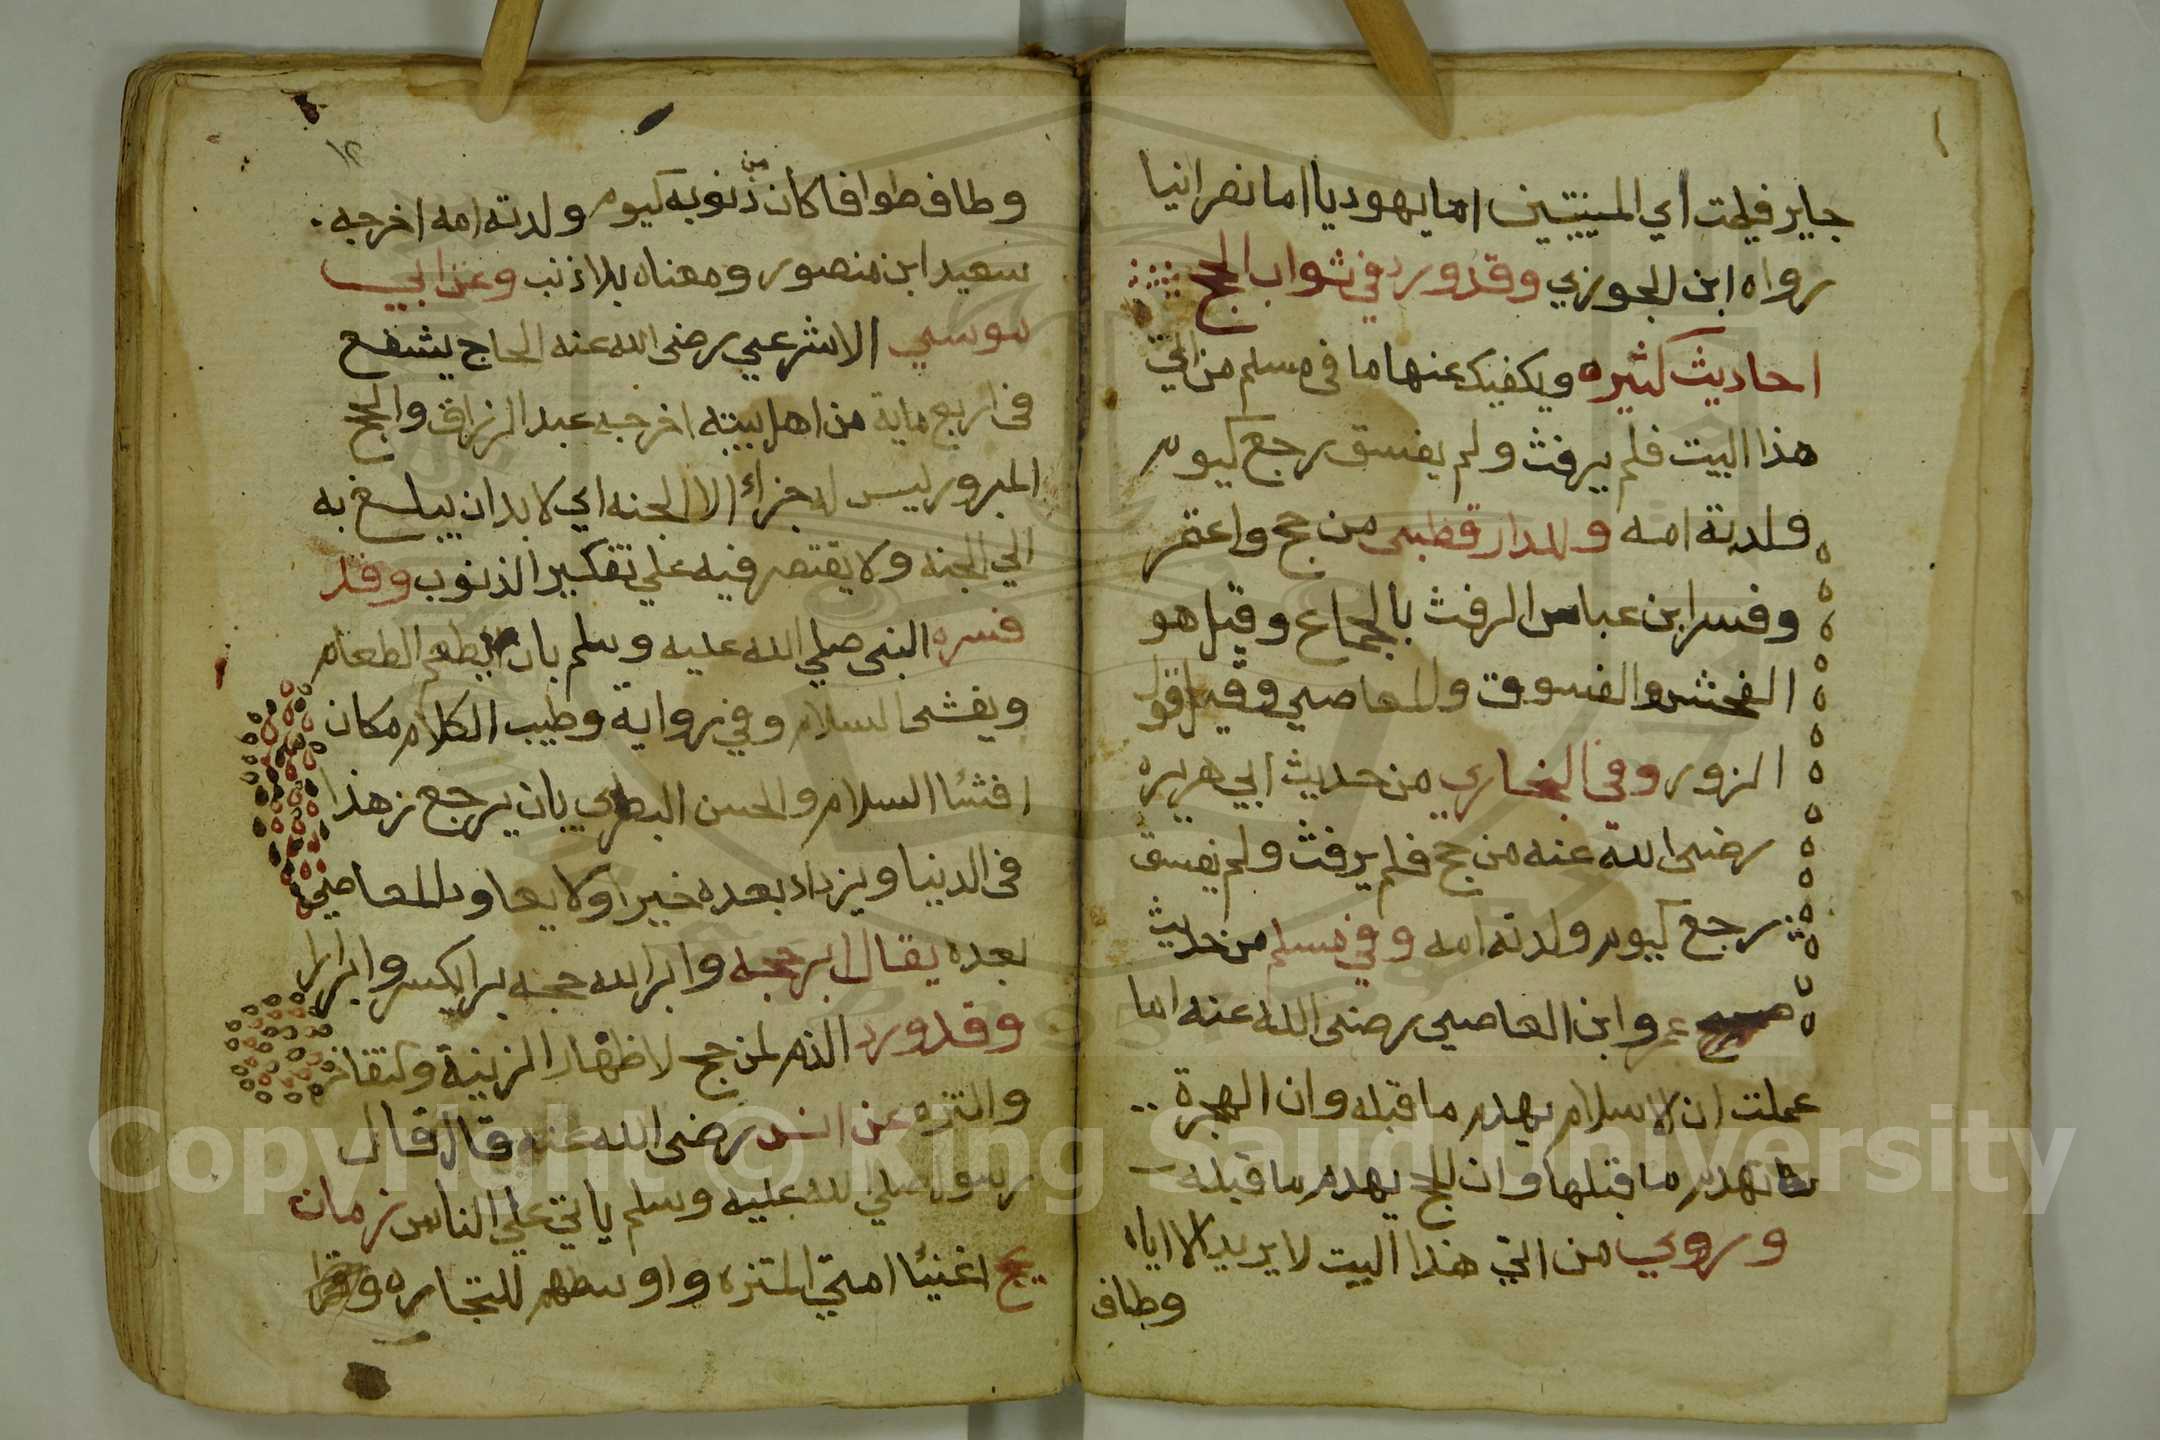 جاير فليمت اي الميتتين اما يهوديا اما نصرانيا
رواه ابن الجوزي وقد ورد في ثواب الحج
احاديث كثيره ويكفيك عنها ما في مسلم من اتي
هذا البيت فلم يرفث ولم يفسق رجع كيوم
ولدته امه وللدارقطبى من حج واعتمر
وفسر ابن عباس الرفث بالجماع وقيل هو
الفحش والفسوق والمعاصي وقيل قول
الزور وفي البخاري من حديث ابي هريره
رضى الله عنه من حج فلم يرفث ولم يفسق
رجع كيوم ولدته امه وفي مسلم من حديث
عمرو ابن العاصي رضى الله عنه اما
علمت ان الاسلام يهدم ما قبله وان الهجرة
تهدم ما قبلها وان الحج يهدم ما قبله
وروي من اتي هذا البيت لا يريد الا اياه
وطاف
١٢
وطاف طوافا كان من ذنوبه كيوم ولدته امه اخرجه
سعيد ابن منصور ومعناه بلا ذنب وعن ابي
موسي الاشرعي رضى الله عنه الحاج يشفع
في اربع ماية من اهل بيته اخرجه عبد الرزاق والحج
المبرور ليس له جزاء الا الجنه اي لا بد ان يبلغ به
الي الجنه ولا يقتصر فيه علي تفكير الذنوب وقد
فسره النبى صلي الله عليه وسلم بان يطعم الطعام
ويفشى السلام وفي رواية وطيب الكلام مكان
افشئا السلام والحسن البصري بان يرجع زهذا
في الدنيا ويزداد بعده خيرا ولا يعاود المعاصي
بعده يقال ابر حجه وابر الله حجه برا بكسر وابرارا
وقد ورد الذم لمن حج لاظهار الزينة ولتفاخر
والتنزه عن انس رضى الله عنه قال قال
رسول صلي الله عليه وسلم ياتي علي الناس زمان
يحج اغنيئا امتي للتنزه واوسطهم للتجاره
Copyright © King Saud University